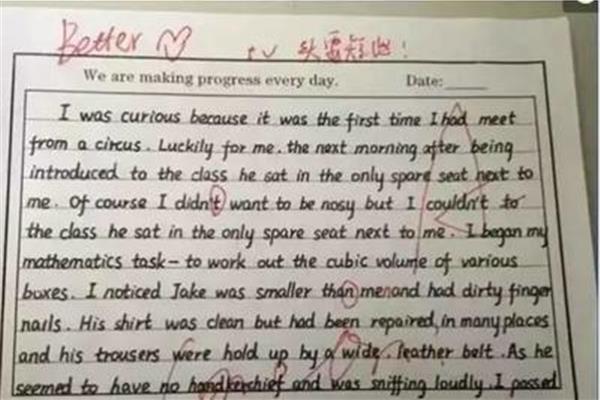 Better
头要短些!
We are making progress every day. Date:
I was curious because it was the first time I had meet
from a circus. Luckily for me. the next morning after being
introduced to the class he sat in the only spare seat next to
me. Of course I didn't want to be nosy but I couldn't to
the class he sat in the only spare seat next to me. I began my
mathematics task - to work out the cubic volume of various
boxes. I noticed Jake was smaller than menand had dirty finger
nails. His shirt was clean but had been repaired, in many places
and his trousers were hold up by a wide, leather belt. As he
seemed to have no handkerchief and was sniffing loudly. I passed